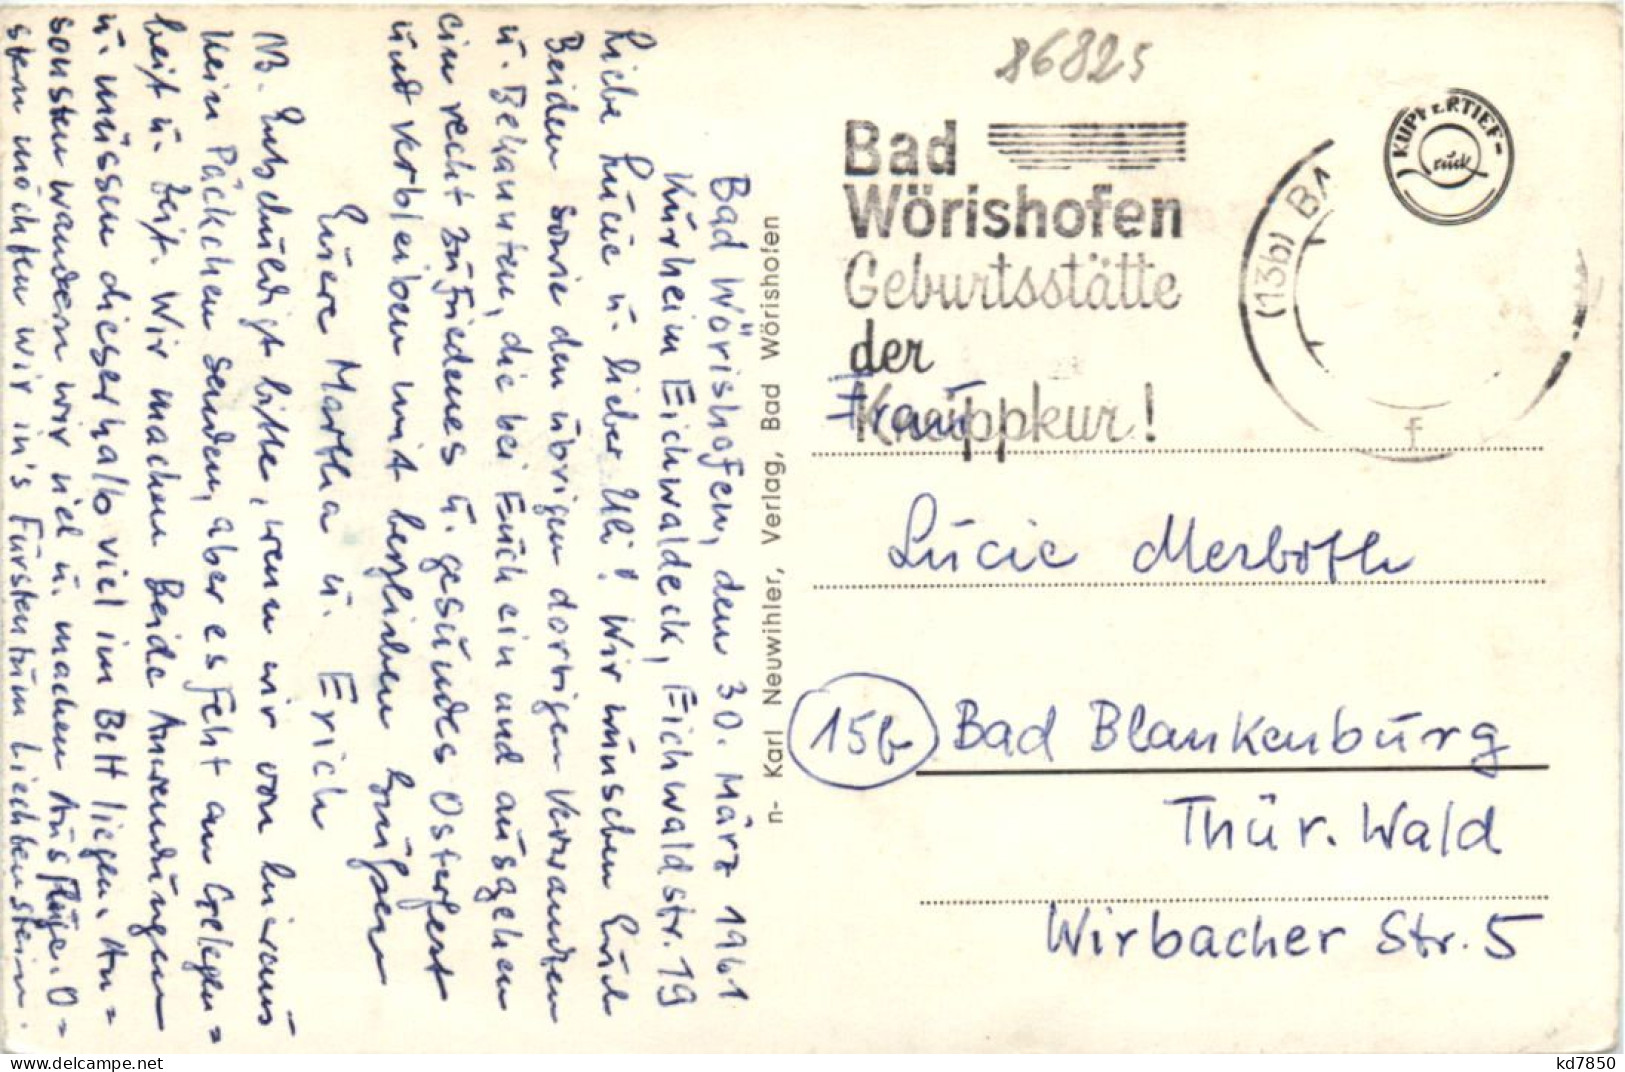 Bad Wörishofen, den 30. März 1961
Kurheim Eichwaldeck, Eichwaldstr. 19
Liebe Lucie u. lieber Uli! Wir wünschen Euch
Beiden sowie den übrigen dortigen Verwandten
u. Bekannten, die bei Euch ein und ausgehen
ein recht zufriedenes u. gesundes Osterfest
und verbleiben mit herzlichen Grüßen
Eure Martha u. Erich
NB. Entschuldigt bitte, wenn wir von hieraus
kein Päckchen senden, aber es fehlt an Gelegen=
heit u. Zeit. Wir machen Beide Anwendungen
u. müssen dieserhalb viel im Bett liegen. An=
sonsten wandern wir viel u. machen Ausflüge. O=
stern möchten wir in's Fürstentum Liechtenstein.
n- Karl Neuwihler, Verlag, Bad Wörishofen
86825
Bad
Wörishofen
Geburtsstätte
der
Kneippkur!
(13b) BA
f
KUPFERTIEF=
Druck
Frau
Lucie Merboth
15b Bad Blankenburg
Thür. Wald
Wirbacher Str. 5
delcampe.net
kd7850